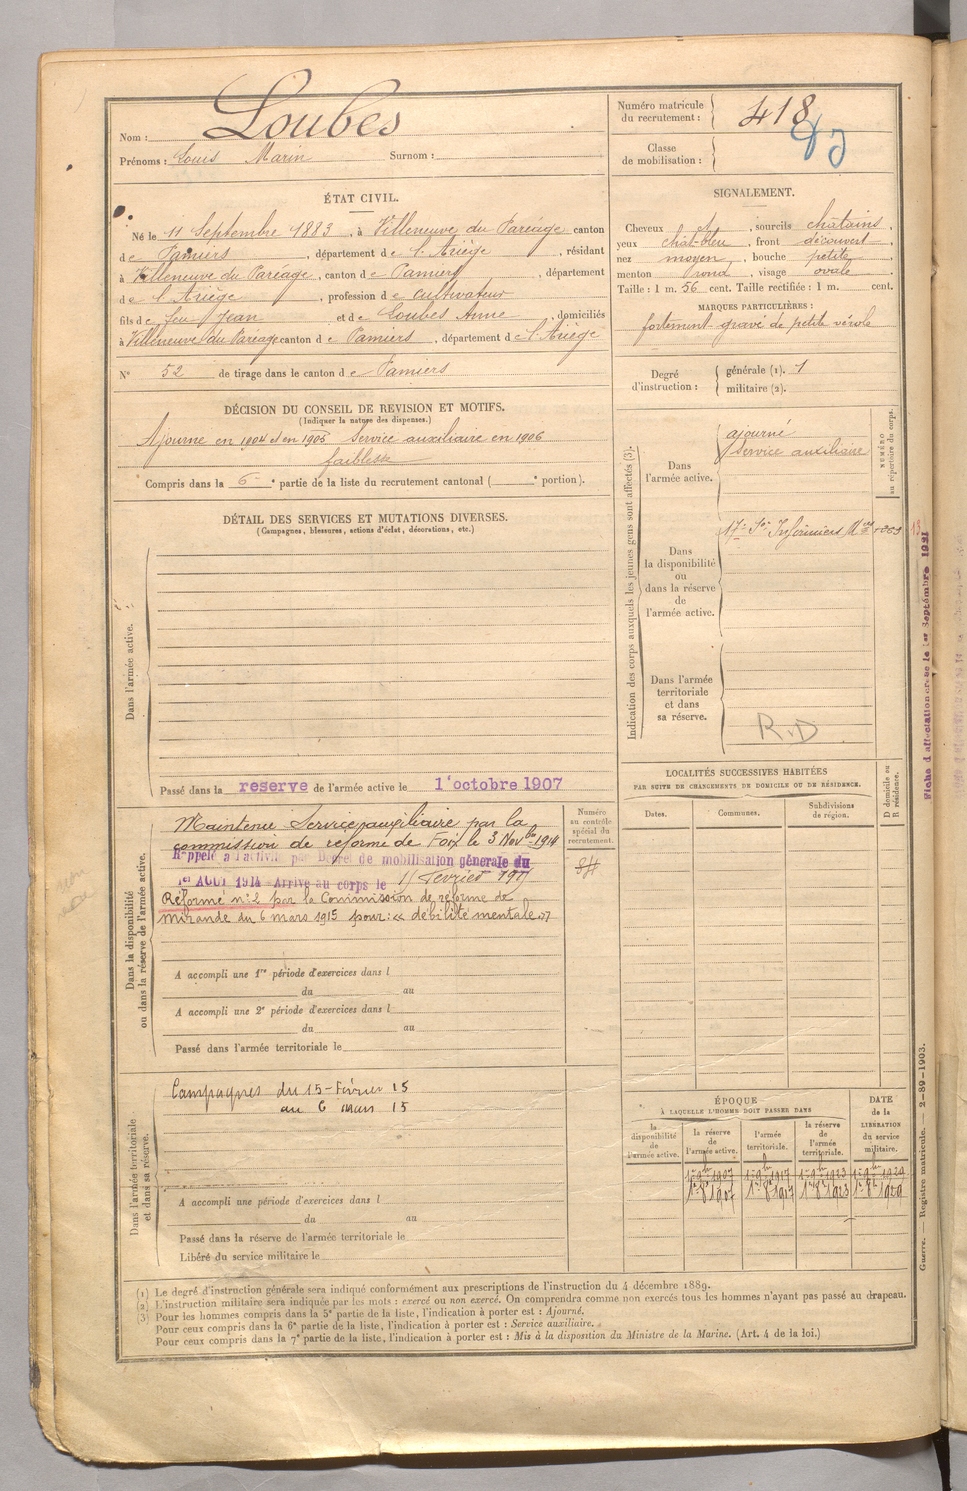 Nom : Loubes
Prénoms : Louis Marin Surnom :
Numéro matricule du recrutement : 418
Classe de mobilisation :
ÉTAT CIVIL.
Né le 11 Septembre 1883, à Villeneuve du Paréage canton
de Pamiers, département de l'Ariège, résidant
à Villeneuve du Paréage, canton de Pamiers, département
de l'Ariège, profession de cultivateur
fils de feu Jean et de Loubes Anne, domiciliés
à Villeneuve du Paréage canton de Pamiers, département de l'Ariège
N° 52 de tirage dans le canton de Pamiers
SIGNALEMENT.
Cheveux , sourcils châtains,
yeux chât-bleu, front découvert,
nez moyen, bouche petite,
menton rond, visage ovale
Taille : 1 m. 56 cent. Taille rectifiée : 1 m. cent.
MARQUES PARTICULIÈRES :
fortement gravé de petite vérole
Degré d'instruction : générale (1). 1
militaire (2).
DÉCISION DU CONSEIL DE REVISION ET MOTIFS.
(Indiquer la nature des dispenses.)
Ajourné en 1904 et en 1905 Service auxiliaire en 1906
faiblesse
Compris dans la 6e partie de la liste du recrutement cantonal ( e portion).
DÉTAIL DES SERVICES ET MUTATIONS DIVERSES.
(Campagnes, blessures, actions d'éclat, décorations, etc.)
Dans l'armée active.
Passé dans la reserve de l'armée active le 1 octobre 1907
Indication des corps auxquels les jeunes gens sont affectés (3).
NUMÉRO au répertoire du corps.
Dans l'armée active.
ajourné
Service auxiliaire
Dans la disponibilité ou dans la réserve de l'armée active.
17e Son Infirmiers
Dans l'armée territoriale et dans sa réserve.
R.D
Fiche d'affectation créée le 1er Septembre 1921
Dans la disponibilité ou dans la réserve de l'armée active.
Maintenu Service auxiliaire par la
commission de réforme de Foix le 3 Novbre 1914
Rappelé à l'activité par Décret de mobilisation générale du
1er AOUT 1914 - Arrivé au corps le
Réformé n°2 par la Commission de réforme de
Mirande du 6 mars 1915 pour : « débilité mentale »
Numéro au contrôle spécial du recrutement.
84
A accompli une 1re période d'exercices dans l
du au
A accompli une 2e période d'exercices dans l
du au
Passé dans l'armée territoriale le
Dans l'armée territoriale et dans sa réserve.
Campagnes du 15 - Février 15
au 6 mars 15
A accompli une période d'exercices dans l
du au
Passé dans la réserve de l'armée territoriale le
Libéré du service militaire le
LOCALITÉS SUCCESSIVES HABITÉES
PAR SUITE DE CHANGEMENTS DE DOMICILE OU DE RÉSIDENCE.
D domicile ou R résidence.
Dates. Communes. Subdivisions de région.
ÉPOQUE
À LAQUELLE L'HOMME DOIT PASSER DANS
DATE de la LIBÉRATION du service militaire.
la disponibilité de l'armée active. la réserve de l'armée active. l'armée territoriale. la réserve de l'armée territoriale.
1er 8 1907 1er 8 1917 1er 8 1923 1er 8 1929
Guerre. Registre matricule. — 2-89-1903.
(1) Le degré d'instruction générale sera indiqué conformément aux prescriptions de l'instruction du 4 décembre 1889.
(2) L'instruction militaire sera indiquée par les mots : exercé ou non exercé. On comprendra comme non exercés tous les hommes n'ayant pas passé au drapeau.
(3) Pour les hommes compris dans la 5e partie de la liste, l'indication à porter est : Ajourné.
Pour ceux compris dans la 6e partie de la liste, l'indication à porter est : Service auxiliaire.
Pour ceux compris dans la 7e partie de la liste, l'indication à porter est : Mis à la disposition du Ministre de la Marine. (Art. 4 de la loi.)